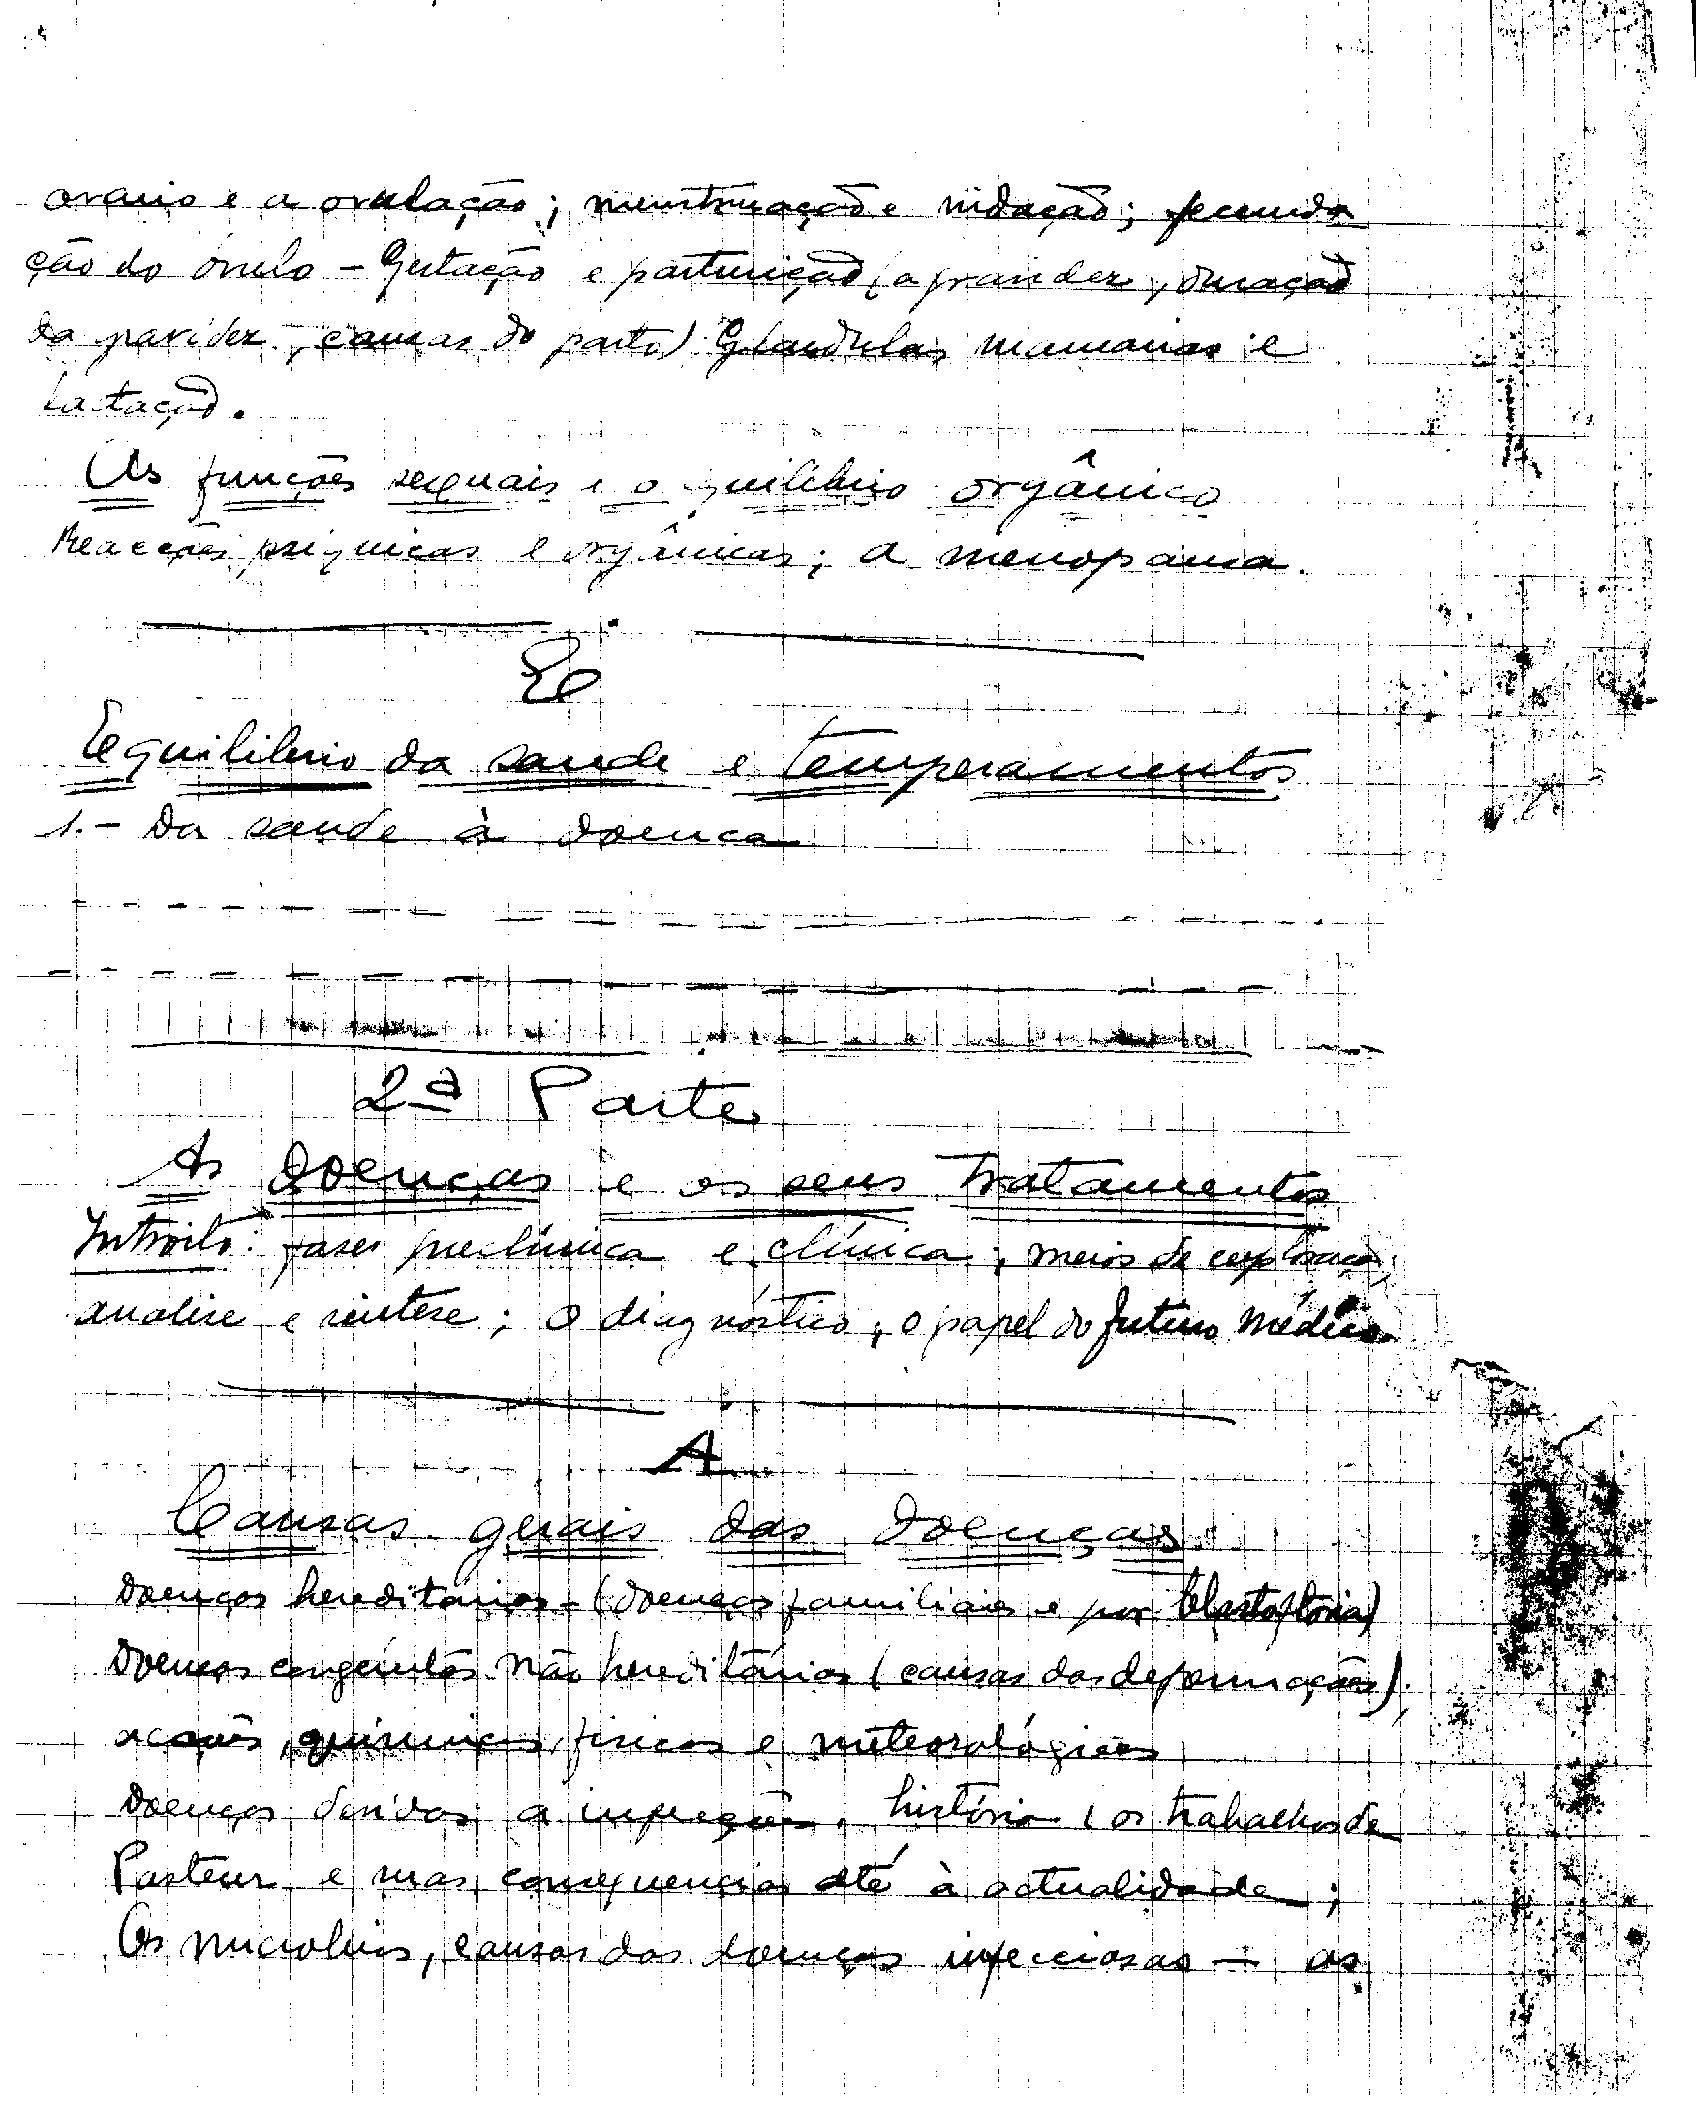 ovario e a ovulação; menstruação e nidação; fecunda
ção do óvulo - Gestação e parturição (a gravidez, duração
da gravidez, causas do parto) Glandulas mamarias e
lactação.
As funções sexuais e o equilibrio orgânico
Reacções psiquicas e orgânicas; a menopausa.
E
Equilibrio da saude e temperamentos
1.- Da saude à doença
2ª Parte
As doenças e os seus tratamentos
Introito: fases preclínica e clínica; meios de exploração;
analise e sintese; o diagnóstico; o papel do futuro médico.
A
Causas gerais das doenças
Doenças hereditárias - (doenças familiares e por blastoftoria)
Doenças congénitas não hereditárias (causas das deformações);
acções químicas, fisicas e meteorológicas
Doenças devidas a infecções, história (os trabalhos de
Pasteur e suas consequencias até à actualidade;
Os microbios, causas das doenças infecciosas - as